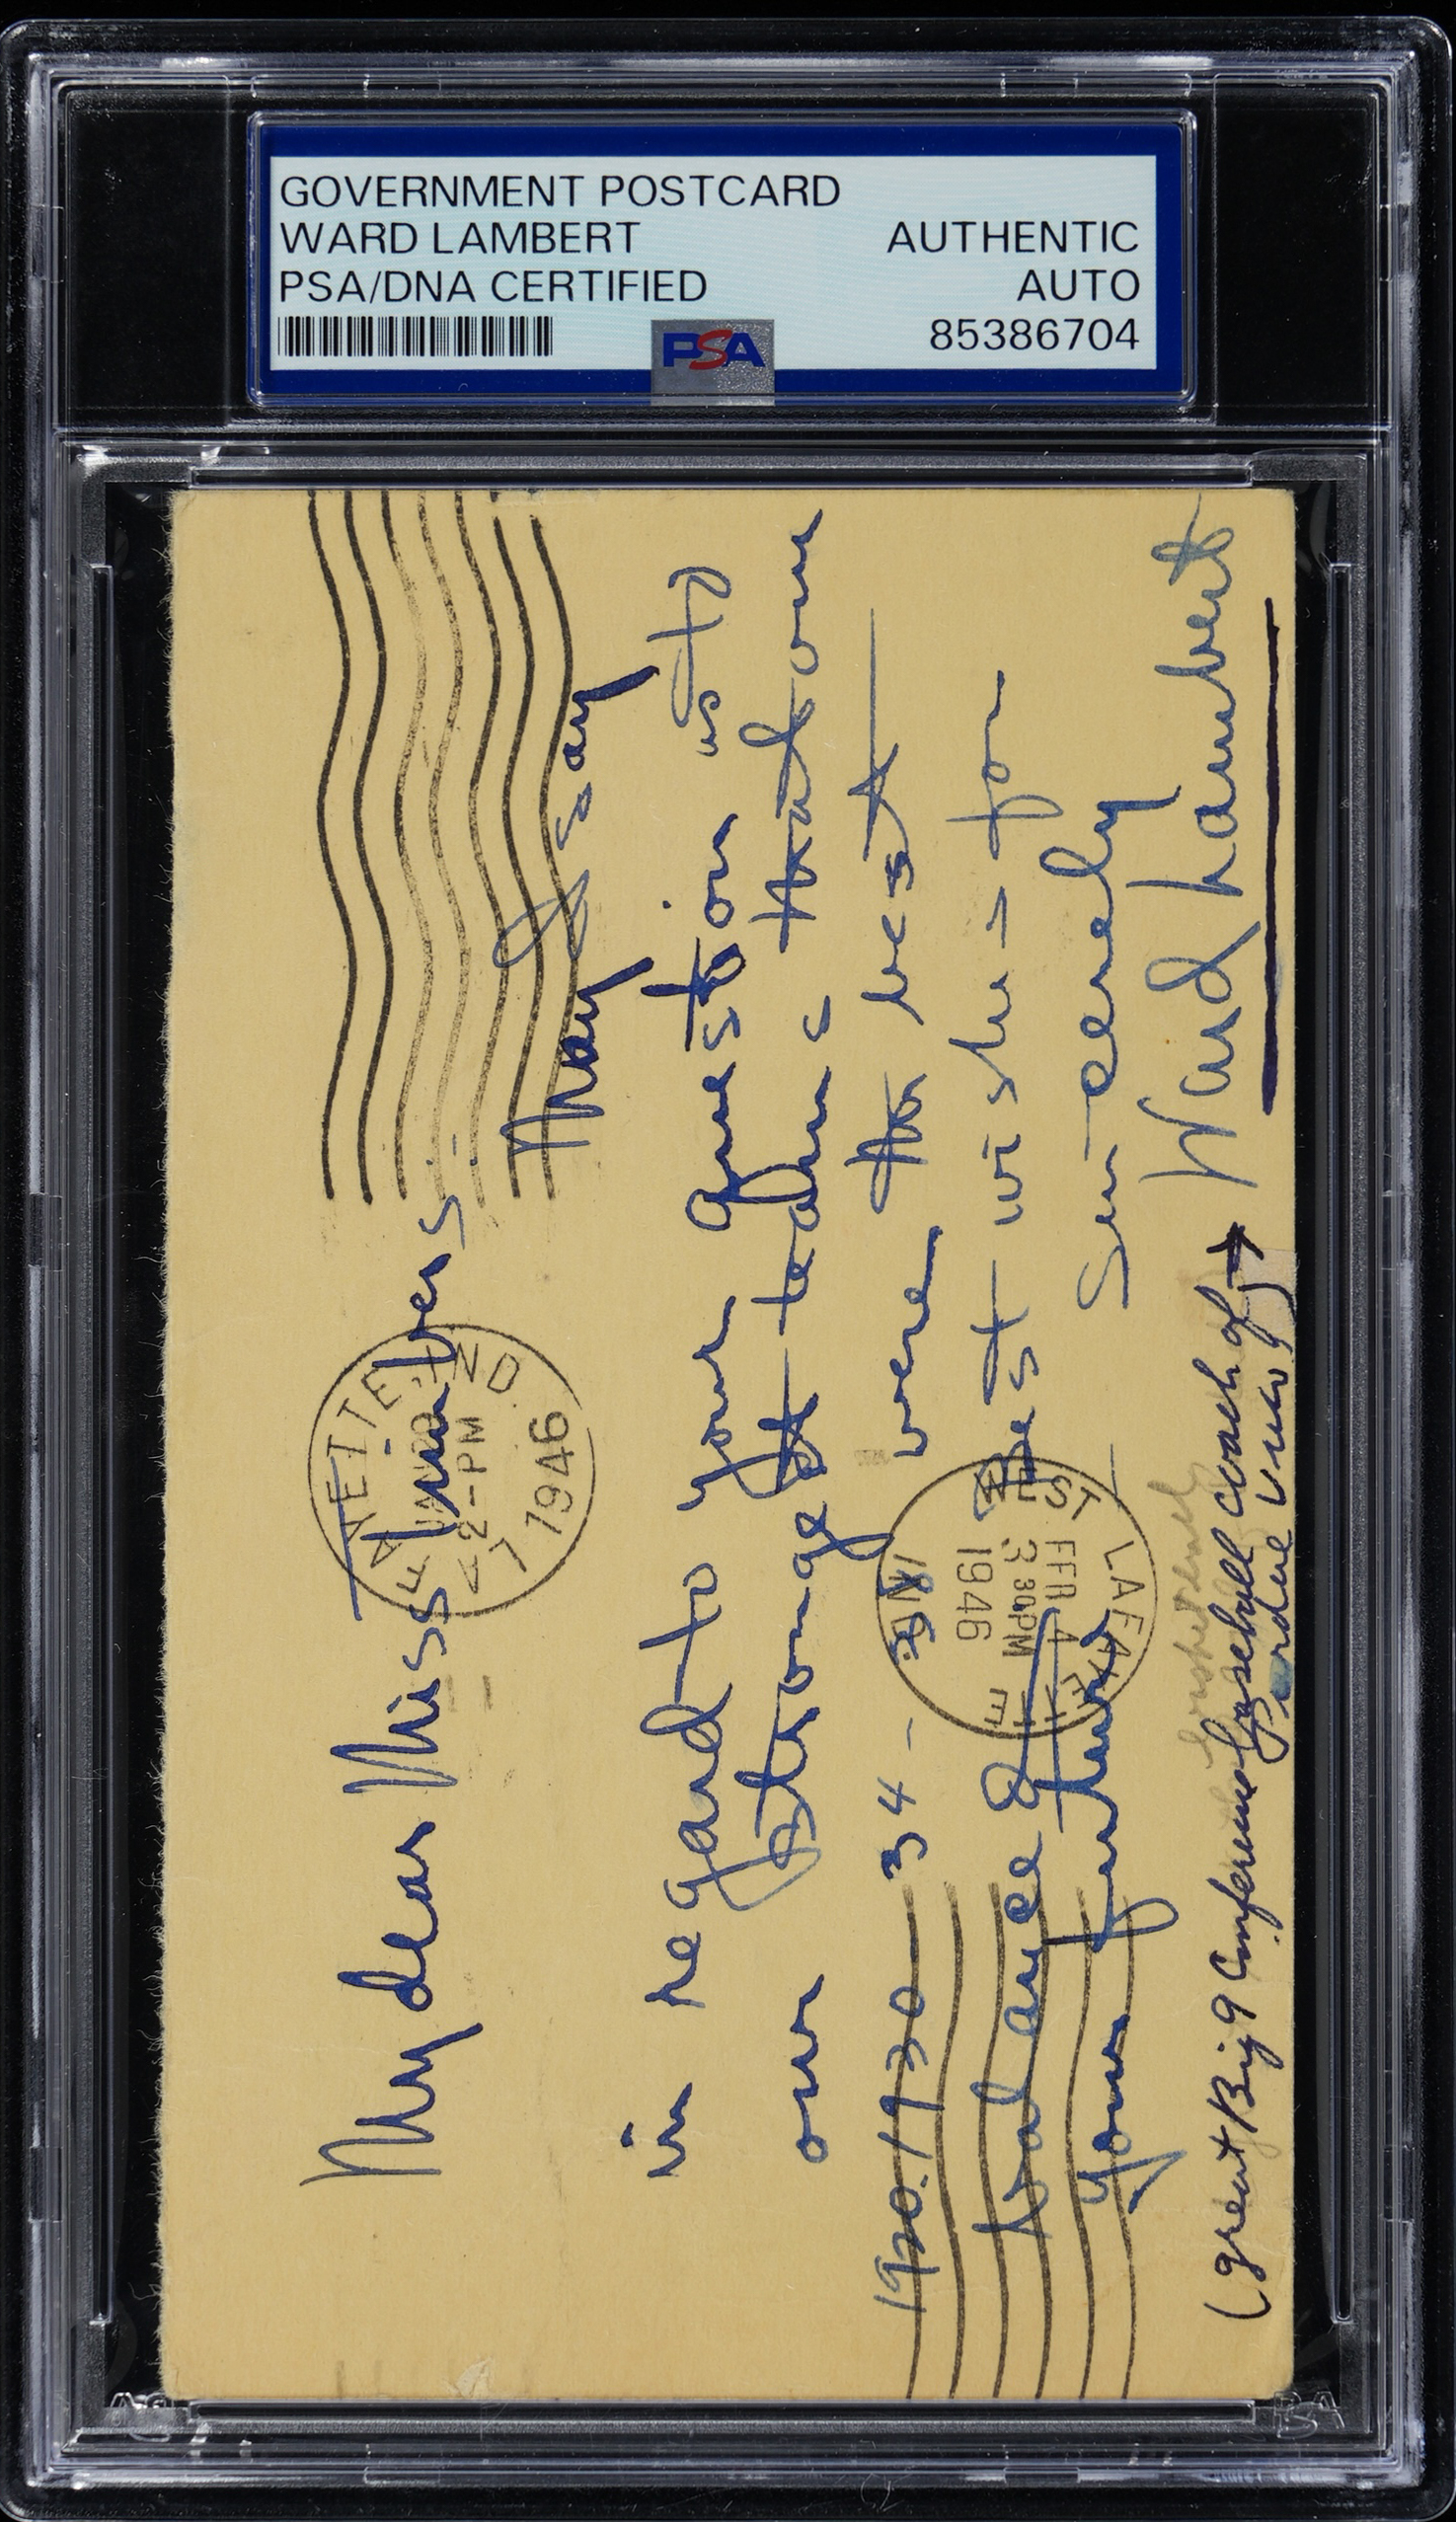 GOVERNMENT POSTCARD
WARD LAMBERT
PSA/DNA CERTIFIED
AUTHENTIC
AUTO
85386704
PSA
My dear Miss
May I say
in regard to your question as to
our strongest teams that our
1920. 1930 34 - were the best
best wishes for
your future
Sincerely
Ward Lambert
(great Big 9 Conference baseball coach of →
LAFAYETTE IND
2-PM
1946
LAFAYETTE
FEB 4
3 30 PM
1946
IND